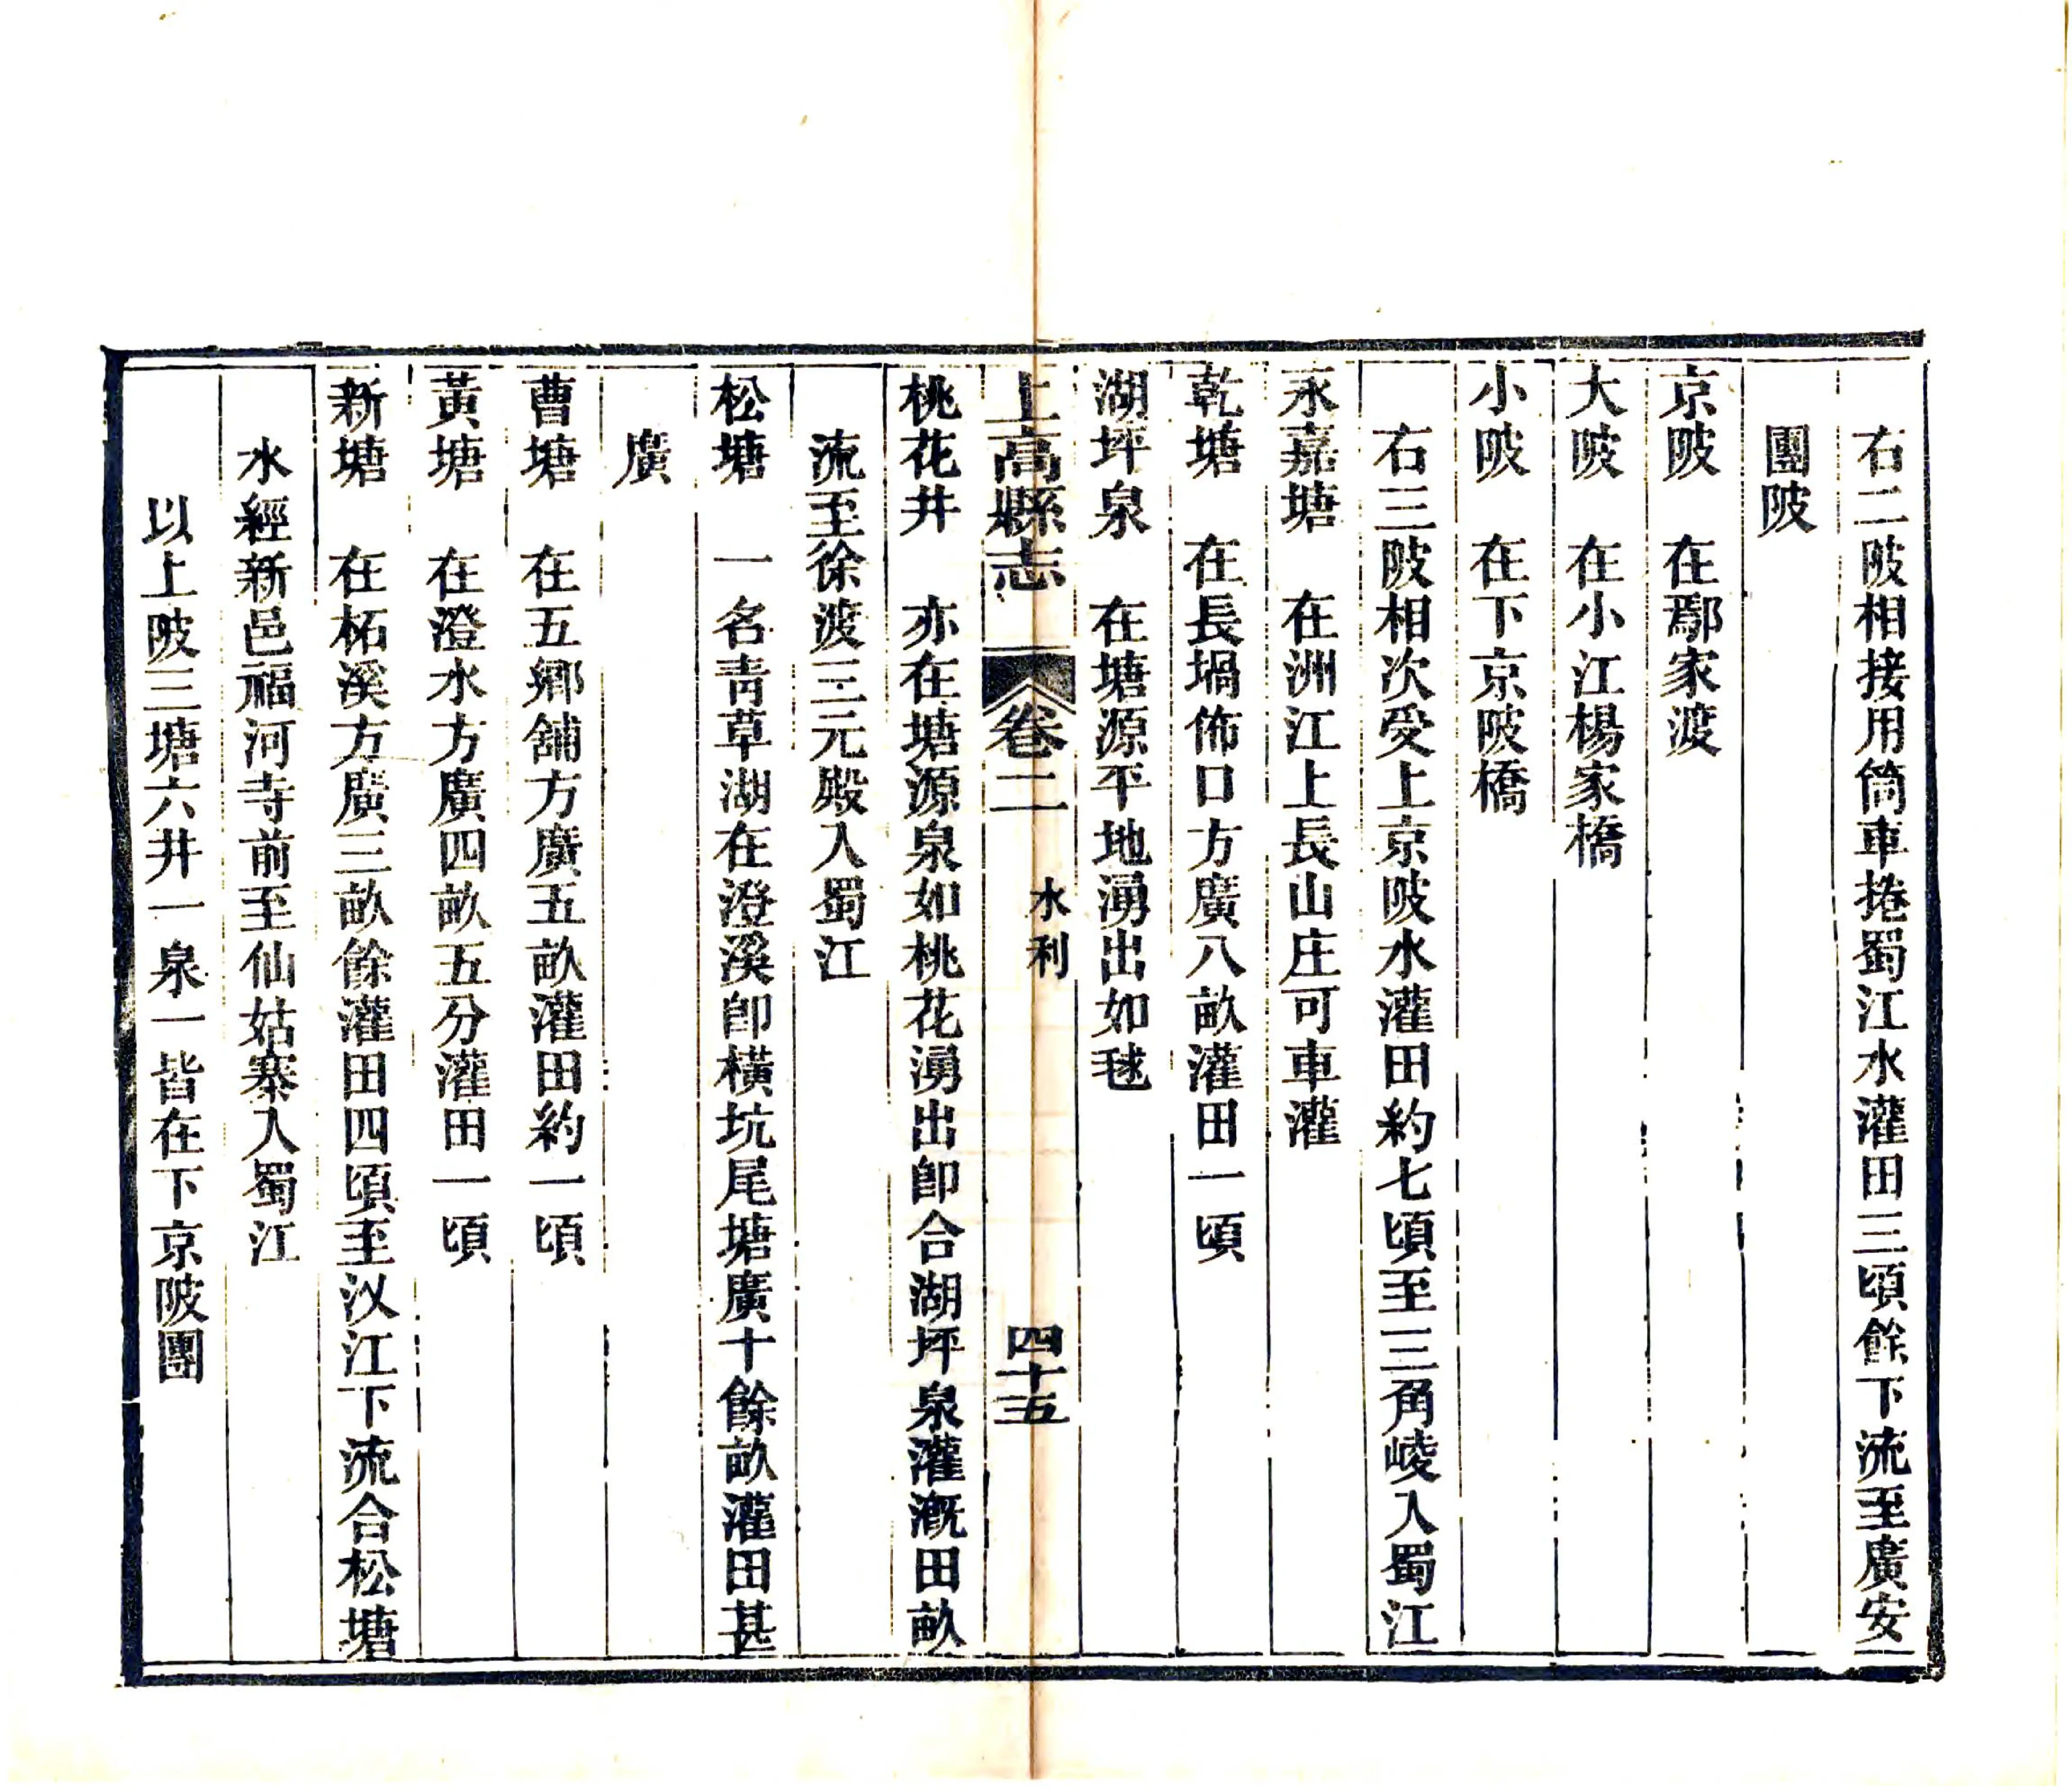 右二陂相接用筒車捲蜀江水灌田三頃餘下流至廣安
團陂
京陂　在鄢家渡
大陂　在小江楊家橋
小陂　在下京陂橋
右三陂相次受上京陂水灌田約七頃至三角崚入蜀江
永嘉塘　在洲江上長山庄可車灌
乾塘　在長堝佈口方廣八畝灌田一頃
湖坪泉　在塘源平地湧出如毬
上高縣志　卷二　水利　四十五
桃花井　亦在塘源泉如桃花湧出卽合湖坪泉灌溉田畝
流至徐渡三元殿入蜀江
松塘　一名青草湖在澄溪卽橫坑尾塘廣十餘畝灌田甚
廣
曹塘　在五鄉舖方廣五畝灌田約一頃
黃塘　在澄水方廣四畝五分灌田一頃
新塘　在柘溪方廣三畝餘灌田四頃至汊江下流合松塘
水經新邑福河寺前至仙姑寨入蜀江
以上陂三塘六井一泉一皆在下京陂團